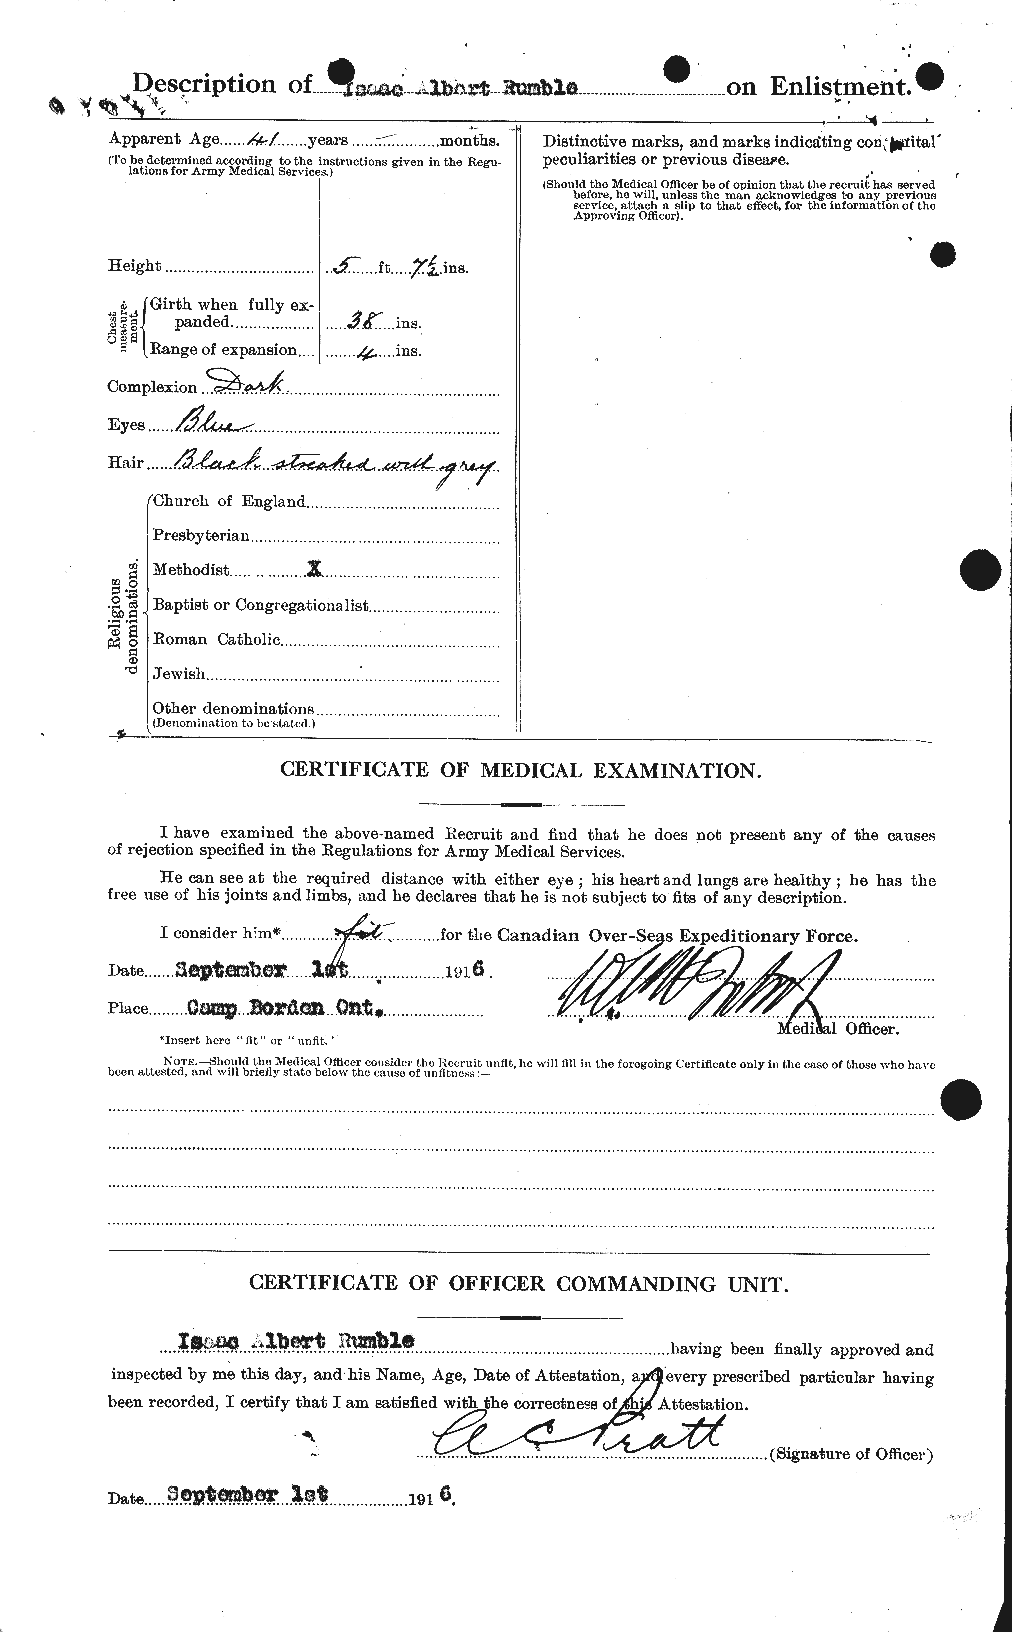 Description of Isaac Albert Rumble on Enlistment.
Apparent Age 41 years — months.
(To be determined according to the instructions given in the Regu-
lations for Army Medical Services.)
Height 5 ft. 7½ ins.
Chest measure-ment.
Girth when fully ex-
panded 38 ins.
Range of expansion 4 ins.
Complexion Dark
Eyes Blue
Hair Black streaked with grey
Religious denominations.
Church of England
Presbyterian
Methodist X
Baptist or Congregationalist
Roman Catholic
Jewish
Other denominations
(Denomination to be stated.)
Distinctive marks, and marks indicating congenital
peculiarities or previous disease.
(Should the Medical Officer be of opinion that the recruit has served
before, he will, unless the man acknowledges to any previous
service, attach a slip to that effect, for the information of the
Approving Officer).
CERTIFICATE OF MEDICAL EXAMINATION.
I have examined the above-named Recruit and find that he does not present any of the causes
of rejection specified in the Regulations for Army Medical Services.
He can see at the required distance with either eye ; his heart and lungs are healthy ; he has the
free use of his joints and limbs, and he declares that he is not subject to fits of any description.
I consider him* fit for the Canadian Over-Seas Expeditionary Force.
Date September 1st 1916.
Place Camp Borden Ont.
Medical Officer.
*Insert here "fit" or "unfit."
NOTE.—Should the Medical Officer consider the Recruit unfit, he will fill in the foregoing Certificate only in the case of those who have
been attested, and will briefly state below the cause of unfitness :—
CERTIFICATE OF OFFICER COMMANDING UNIT.
Isaac Albert Rumble having been finally approved and
inspected by me this day, and his Name, Age, Date of Attestation, and every prescribed particular having
been recorded, I certify that I am satisfied with the correctness of this Attestation.
A C Pratt (Signature of Officer)
Date September 1st 1916.